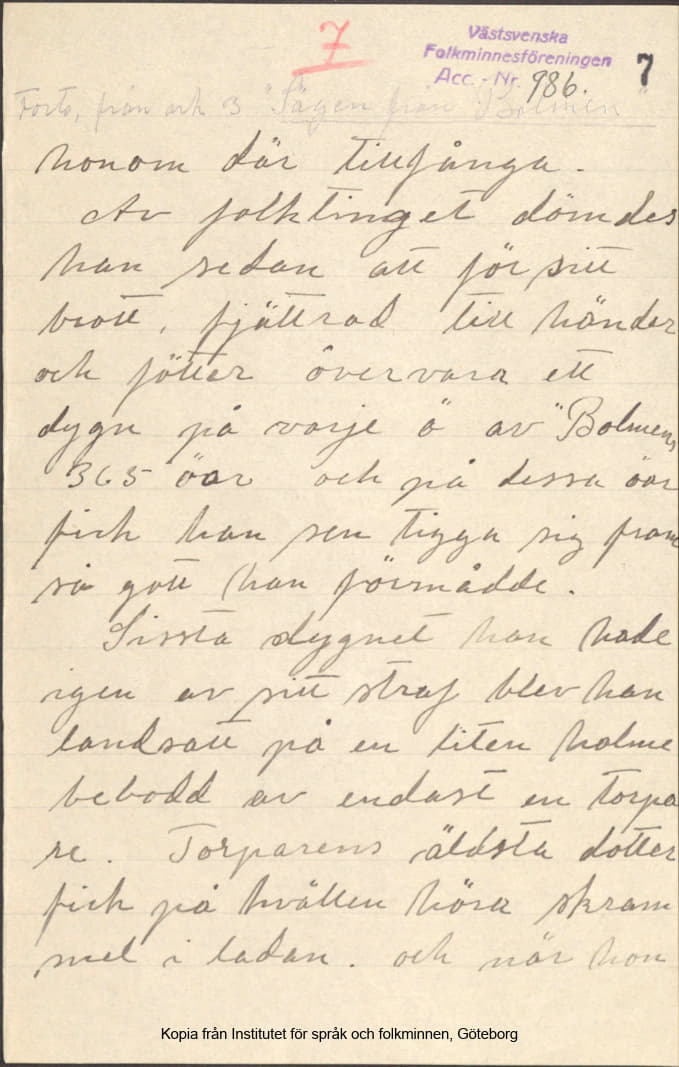 7
Västsvenska
Folkminnesföreningen
Acc. - Nr. 986.
7
Forts, från ark 3 "Sägen från Bolmen"
honom där tillfånga.
Av folktinget dömdes
han sedan att för sitt
brott, fjättrad till händer
och fötter övervara ett
dygn på varje ö av "Bolmens
365 öar och på dessa öar
fick han sen tigga sig fram
så gott han förmådde.
Sissta dygnet han hade
igen av sitt straf blev han
landsatt på en liten holme
bebodd av endast en torpa
re. Torparens äldsta dotter
fick på kvällen höra skram
mel i ladan. och när hon
Kopia från Institutet för språk och folkminnen, Göteborg